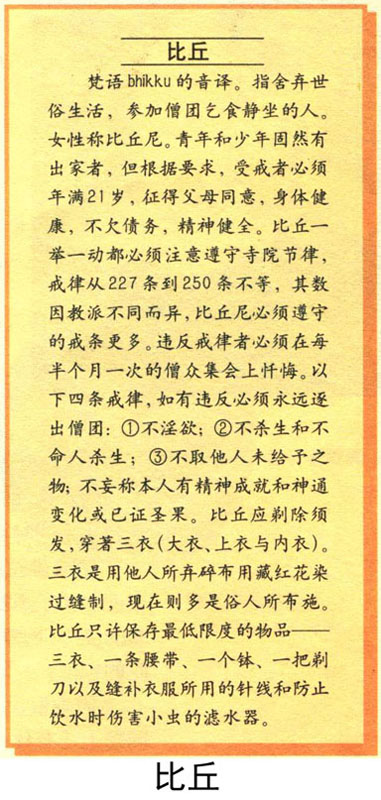 比丘
梵语bhikku的音译。指舍弃世
俗生活，参加僧团乞食静坐的人。
女性称比丘尼。青年和少年固然有
出家者，但根据要求，受戒者必须
年满21岁，征得父母同意，身体健
康，不欠债务，精神健全。比丘一
举一动都必须注意遵守寺院节律，
戒律从227条到250条不等，其数
因教派不同而异，比丘尼必须遵守
的戒条更多。违反戒律者必须在每
半个月一次的僧众集会上忏悔。以
下四条戒律，如有违反必须永远逐
出僧团：①不淫欲；②不杀生和不
命人杀生；③不取他人未给予之
物；不妄称本人有精神成就和神通
变化或已证圣果。比丘应剃除须
发，穿著三衣（大衣、上衣与内衣）。
三衣是用他人所弃碎布用藏红花染
过缝制，现在则多是俗人所布施。
比丘只许保存最低限度的物品——
三衣、一条腰带、一个钵、一把剃
刀以及缝补衣服所用的针线和防止
饮水时伤害小虫的滤水器。
比丘